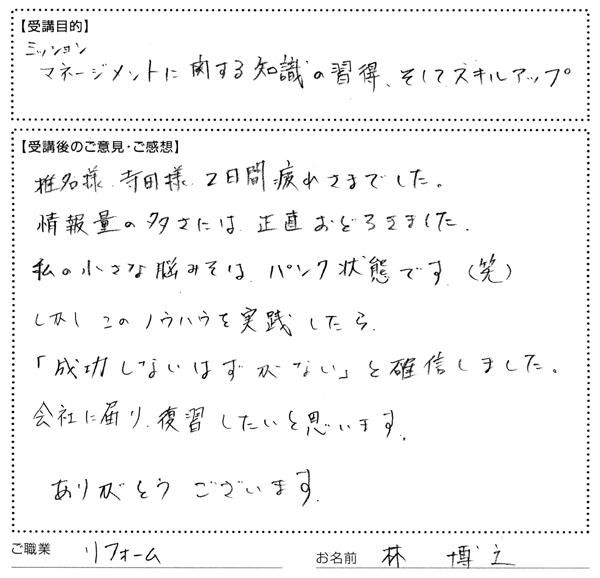 【受講目的】
ミッション
マネージメントに関する知識の習得、そしてスキルアップ
【受講後のご意見・ご感想】
椎名様、寺田様、2日間疲れさまでした。
情報量の多さには、正直おどろきました。
私の小さな脳みそは、パンク状態です(笑)
しかしこのノウハウを実践したら、
「成功しないはずがない」と確信しました。
会社に届り、復習したいと思います。
ありがとうございます。
ご職業 リフォーム お名前 林 博之